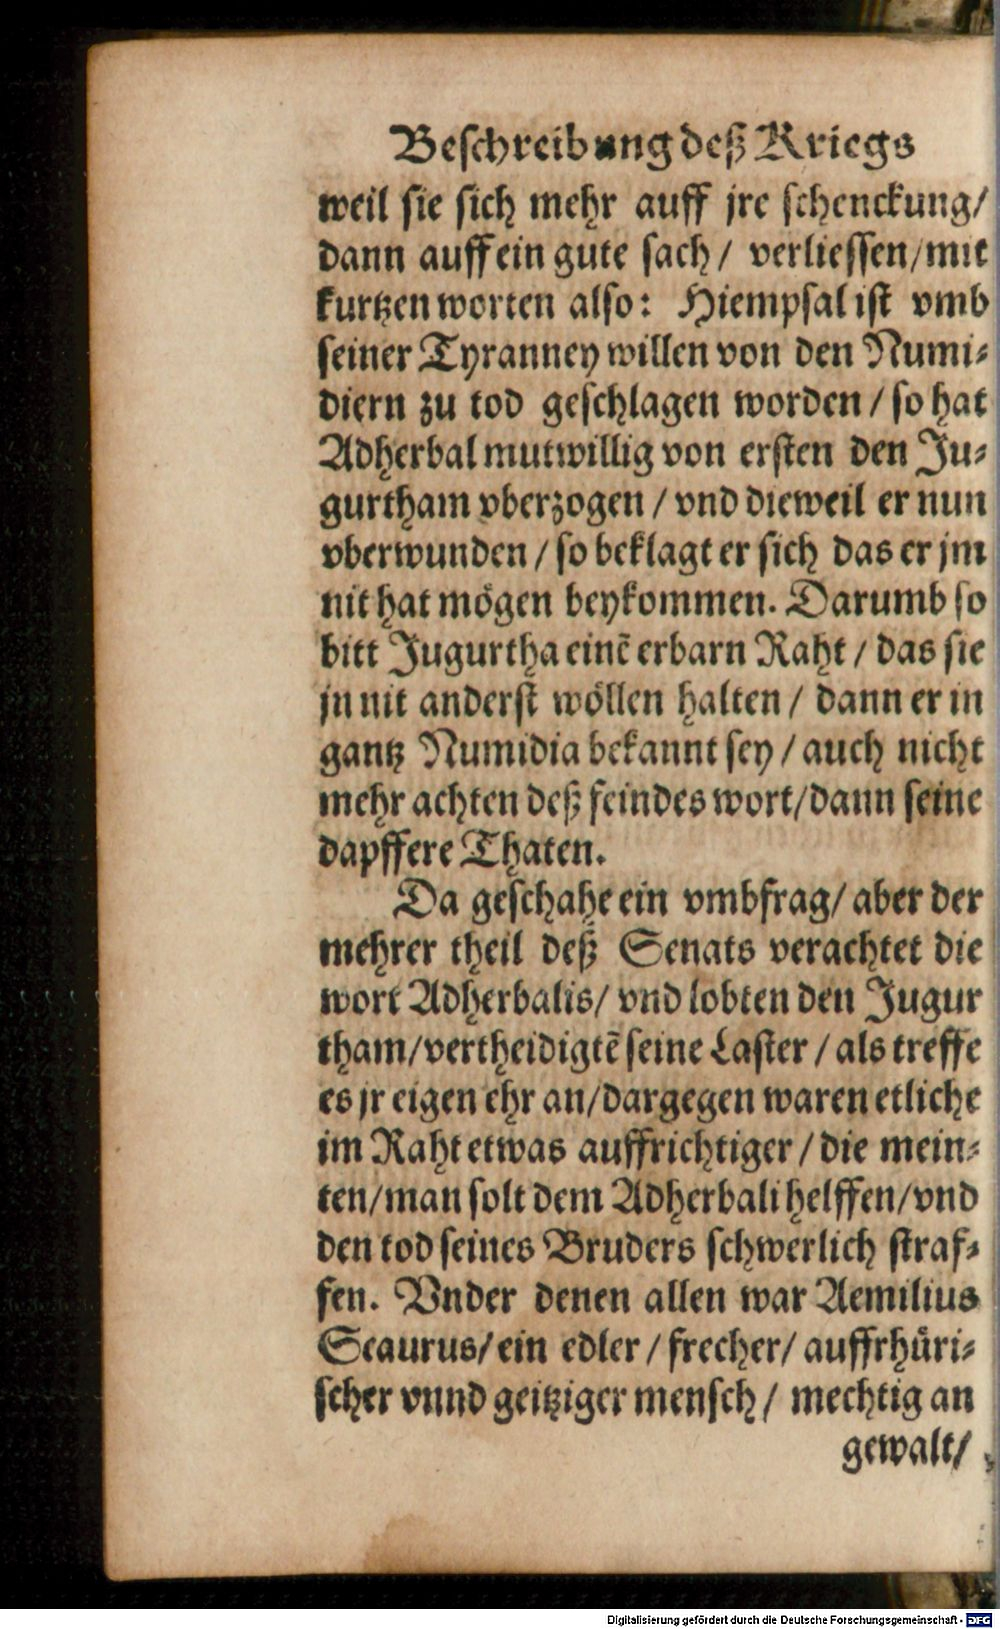 Beschreibung deß Kriegs
weil sie sich mehr auff jre schenckung/
dann auff ein gute sach/ verliessen/mit
kurtzen worten also: Hiempsal ist vmb
seiner Tyranney willen von den Numi-
diern zu tod geschlagen worden/ so hat
Adherbal mutwillig von ersten den Ju-
gurtham vberzogen/ vnd dieweil er nun
vberwunden/ so beklagt er sich das er jm
nit hat mögen beykommen. Darumb so
bitt Jugurtha einē erbarn Raht/ das sie
jn nit anderst wöllen halten/ dann er in
gantz Numidia bekannt sey/ auch nicht
mehr achten deß feindes wort/dann seine
dapffere Thaten.
Da geschahe ein vmbfrag/ aber der
mehrer theil deß Senats verachtet die
wort Adherbalis/ vnd lobten den Jugur
tham/vertheidigtē seine Laster/ als treffe
es jr eigen ehr an/dargegen waren etliche
im Raht etwas auffrichtiger/ die mein-
ten/man solt dem Adherbali helffen/vnd
den tod seines Bruders schwerlich straf-
fen. Vnder denen allen war Aemilius
Scaurus/ein edler/ frecher/ auffrhüri-
scher vnnd geitziger mensch/ mechtig an
gewalt/
Digitalisierung gefördert durch die Deutsche Forschungsgemeinschaft - DFG